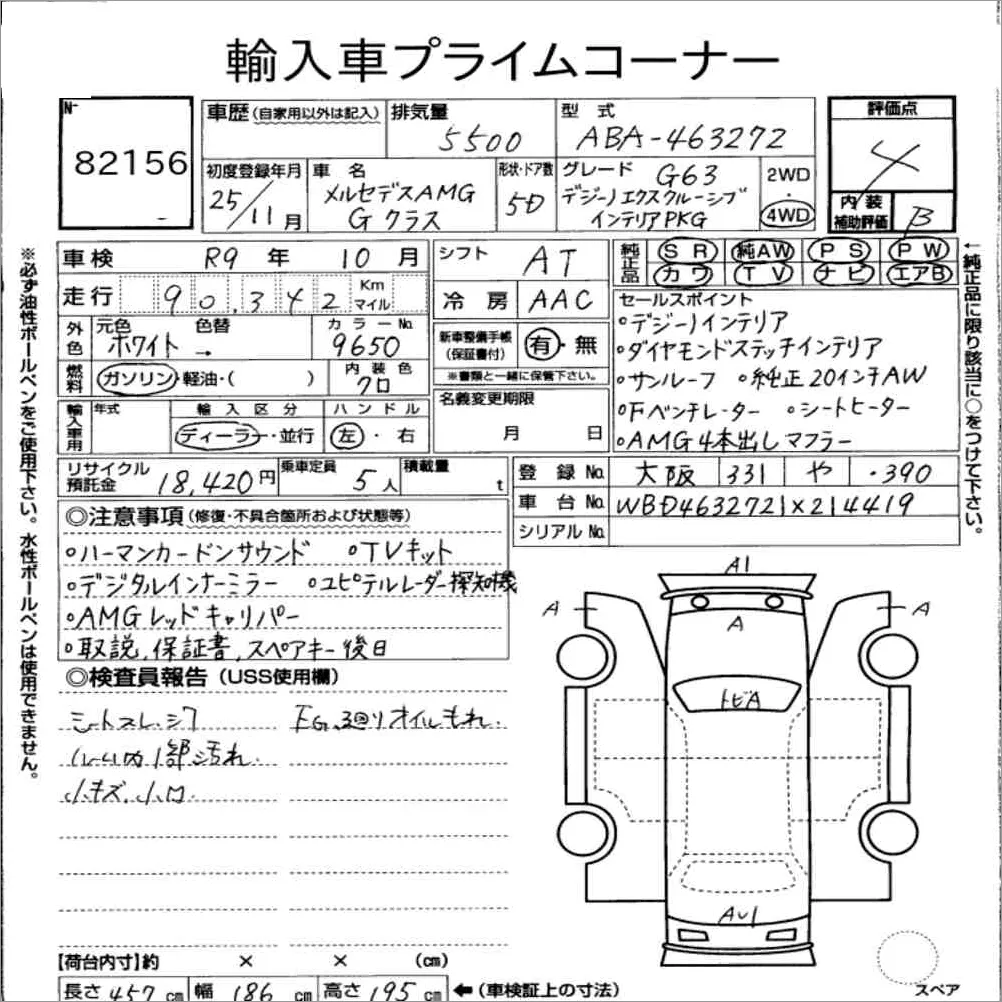 輸入車プライムコーナー
No
82156
車歴 (自家用以外は記入)
排気量
5500
型式
ABA-463272
評価点
4
内装補助評価
B
初度登録年月
25/11月
車名
メルセデスAMG
Gクラス
形状・ドア数
5D
グレード G63
デジーノエクスクルーシブ
インテリアPKG
2WD
・
4WD
車検 R9年 10月
走行 90,342 Km マイル
シフト AT
冷房 AAC
外色
元色 ホワイト
色替 →
カラーNo. 9650
燃料
ガソリン・軽油・( )
内装色 クロ
新車整備手帳(保証書付) 有・無
※書類と一緒に保管下さい。
名義変更期限
月 日
輸入車用
年式
輸入区分
ディーラー・並行
ハンドル
左・右
純正品
SR 純AW PS PW
カワ TV ナビ エアB
セールスポイント
○デジーノインテリア
○ダイヤモンドステッチインテリア
○サンルーフ ○純正20インチAW
○Fベンチレーター ○シートヒーター
○AMG4本出しマフラー
リサイクル預託金 18,420円
乗車定員 5人
積載量 t
登録No. 大阪 331 や ・390
車台No. WBD4632721X214419
シリアルNo.
◎注意事項 (修復・不具合箇所および状態等)
○ハーマンカードンサウンド ○TVキット
○デジタルインナーミラー ○ユピテルレーダー探知機
○AMGレッドキャリパー
○取説,保証書,スペアキー後日
◎検査員報告 (USS使用欄)
シートスレ.シワ
EG.廻りオイルもれ.
ルーム内1部汚れ.
小キズ.小凹.
A1
A
A
A
トビA
AU1
スペア
【荷台内寸】約 × × (cm)
長さ 457 cm 幅 186 cm 高さ 195 cm ←(車検証上の寸法)
※必ず油性ボールペンをご使用下さい。水性ボールペンは使用できません。
←純正品に限り該当に○をつけて下さい。